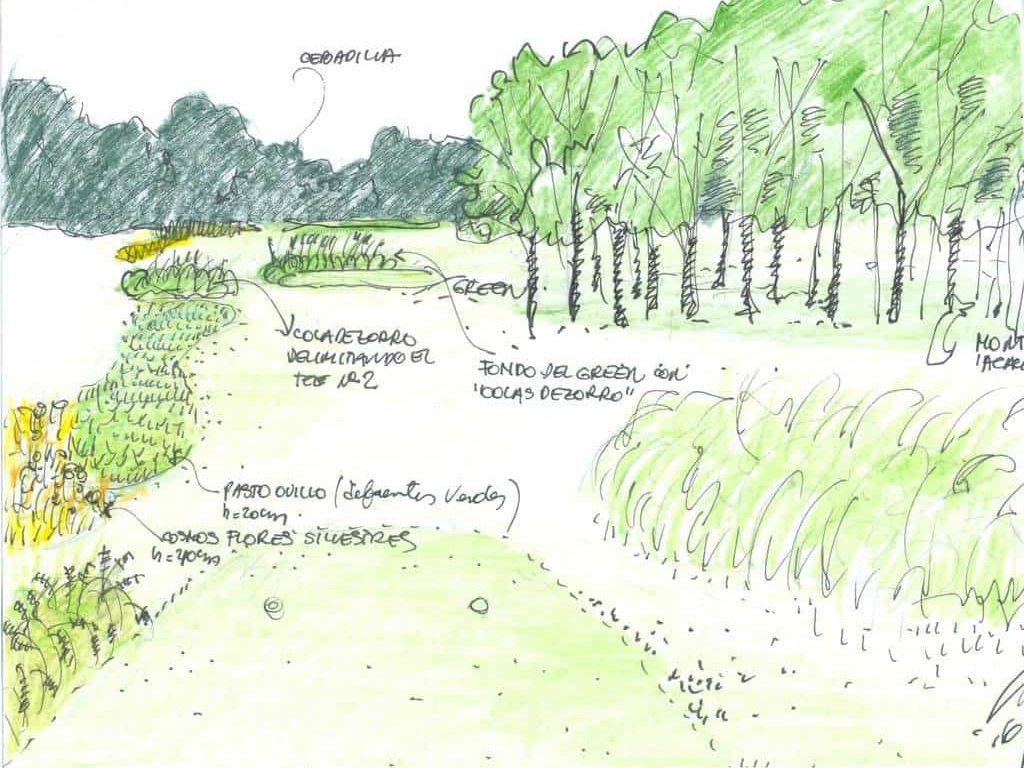 CEBADILLA
GREEN
COLA DE ZORRO
DELIMITANDO EL
TEE Nº2
FONDO DEL GREEN con
"COLAS DE ZORRO"
MONT
PASTO OVILLO (diferentes verdes)
h=20cm.
COSMOS FLORES SILVESTRES
h=40cm